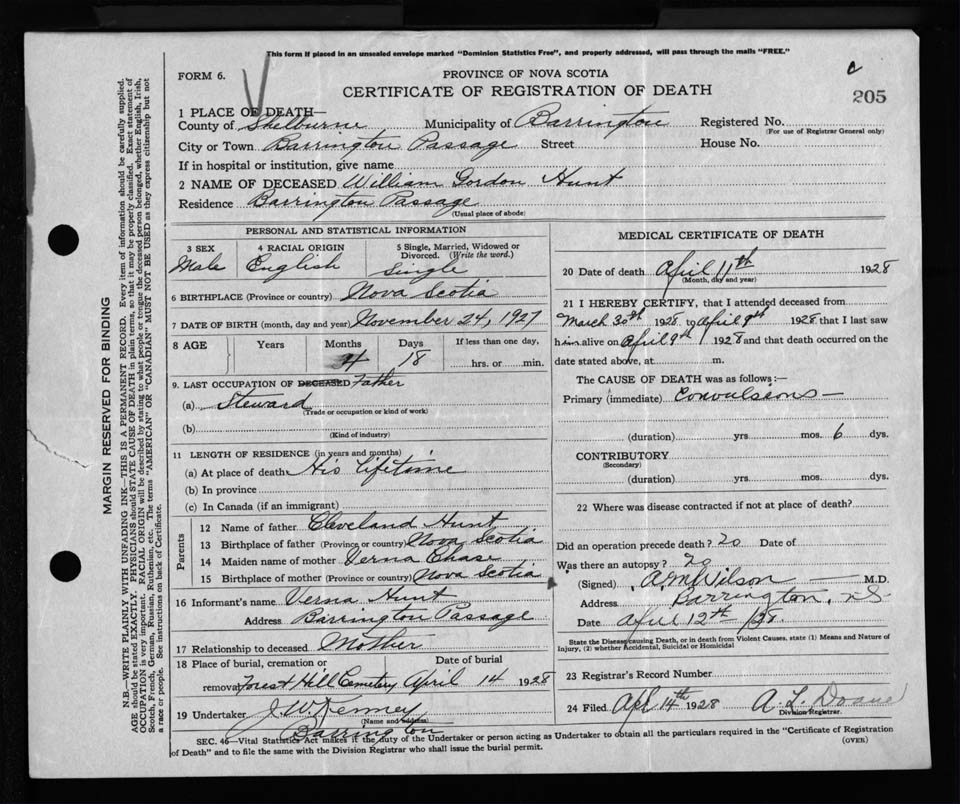 This form if placed in an unsealed envelope marked "Dominion Statistics Free", and properly addressed, will pass through the mails "FREE."
FORM 6.
PROVINCE OF NOVA SCOTIA
CERTIFICATE OF REGISTRATION OF DEATH
c
205
1 PLACE OF DEATH—
County of Shelburne Municipality of Barrington Registered No.
(For use of Registrar General only)
City or Town Barrington Passage Street House No.
If in hospital or institution, give name
2 NAME OF DECEASED William Gordon Hunt
Residence Barrington Passage
(Usual place of abode)
PERSONAL AND STATISTICAL INFORMATION
3 SEX 4 RACIAL ORIGIN 5 Single, Married, Widowed or Divorced. (Write the word.)
Male English Single
6 BIRTHPLACE (Province or country) Nova Scotia
7 DATE OF BIRTH (month, day and year) November 24, 1927
8 AGE Years Months Days If less than one day,
4 18 hrs. or min.
9. LAST OCCUPATION OF DECEASED Father
(a) Steward
(Trade or occupation or kind of work)
(b)
(Kind of industry)
11 LENGTH OF RESIDENCE (in years and months)
(a) At place of death His lifetime
(b) In province
(c) In Canada (if an immigrant)
Parents
12 Name of father Cleveland Hunt
13 Birthplace of father (Province or country) Nova Scotia
14 Maiden name of mother Verna Chase
15 Birthplace of mother (Province or country) Nova Scotia
16 Informant's name Verna Hunt
Address Barrington Passage
17 Relationship to deceased Mother
18 Place of burial, cremation or Date of burial
removal Forest Hill Cemetery April 14 1928
19 Undertaker J. W. Kenney
(Name and address)
Barrington
MEDICAL CERTIFICATE OF DEATH
20 Date of death April 11th 1928
(Month, day and year)
21 I HEREBY CERTIFY, that I attended deceased from
March 30th 1928 to April 9th 1928 that I last saw
him alive on April 9th 1928 and that death occurred on the
date stated above, at m.
The CAUSE OF DEATH was as follows:—
Primary (immediate) Convulsions —
(duration) yrs. mos. 6 dys.
CONTRIBUTORY
(Secondary)
(duration) yrs. mos. dys.
22 Where was disease contracted if not at place of death?
Did an operation precede death? No Date of
Was there an autopsy? No
(Signed) A. M. Wilson — M.D.
Address Barrington, N.S.
Date April 12th /28.
State the Disease causing Death, or in death from Violent Causes, state (1) Means and Nature of
Injury, (2) whether Accidental, Suicidal or Homicidal
23 Registrar's Record Number
24 Filed Apl 14th 1928 A. L. Doane
Division Registrar.
SEC. 46—Vital Statistics Act makes it the duty of the Undertaker or person acting as Undertaker to obtain all the particulars required in the "Certificate of Registration
of Death" and to file the same with the Division Registrar who shall issue the burial permit.
(OVER)
MARGIN RESERVED FOR BINDING
N.B.—WRITE PLAINLY WITH UNFADING INK—THIS IS A PERMANENT RECORD. Every item of information should be carefully supplied.
AGE should be stated EXACTLY. PHYSICIANS should STATE CAUSE OF DEATH in plain terms, so that it may be properly classified. Exact statement of
OCCUPATION is very important. RACIAL ORIGIN will be described by stating to what people or tongue the deceased person belonged, whether English, Irish,
Scotch, French, German, Russian, Ruthenian, etc. The terms "AMERICAN" OR "CANADIAN" MUST NOT BE USED as they express citizenship but not
a race or people. See instructions on back of Certificate.